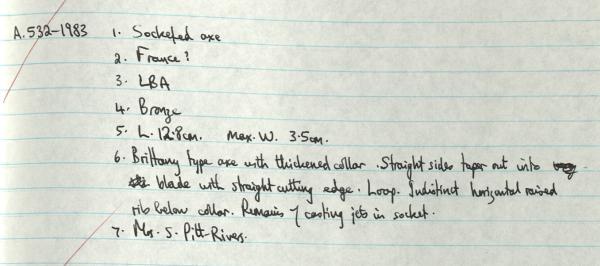 A.532-1983 1. Socketed axe
2. France?
3. LBA
4. Bronze
5. L. 12.8cm. Max. W. 3.5cm.
6. Brittany type axe with thickened collar. Straight sides taper out into
blade with straight cutting edge. Loop. Indistinct horizontal raised
rib below collar. Remains of casting jets in socket.
7. Mrs. S. Pitt-Rivers.